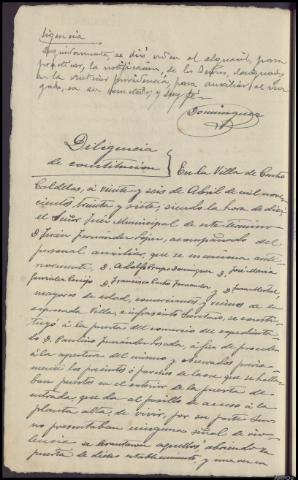 Diligencia
Seguidamente, se dió orden al alguacil, para
practicar, la notificación, de los Señores, designados
en la anterior providencia, para auxiliar, al Juz
gado, en su cometido; y doy fé=
Dominguez
Diligencia
de constitucion } En la Villa de Castro
Caldelas, á veinte y seis de Abril de mil nove
cientos treinta y siete; siendo la hora de diez
el Señor Juez Municipal de este término
D. Juan Fernández López, acompañado del
personal auxiliar, que se menciona ante
riormente, D. Adolfo Domínguez, D. José María
González D. Francisco Fernández y Juan
mayores de edad, comerciantes y vecinos de la
expresada Villa, é infrascrito Secretario, se consti-
tuyó á la puerta del comercio del expedientado
D. Paulino Fernández Losada, á fin de proceder
á la apertura del mismo y observados previa-
mente los precintos ó pasadores de lacre que se halla-
ban puestos en el exterior de la puerta de
entrada, que da al pasillo de acceso á la
planta alta, de vivir, por su parte Sur,
no presentaban ninguna señal de vio-
lencia se levantaron aquellos abriendo la
puerta de dicho establecimiento, y una vez en